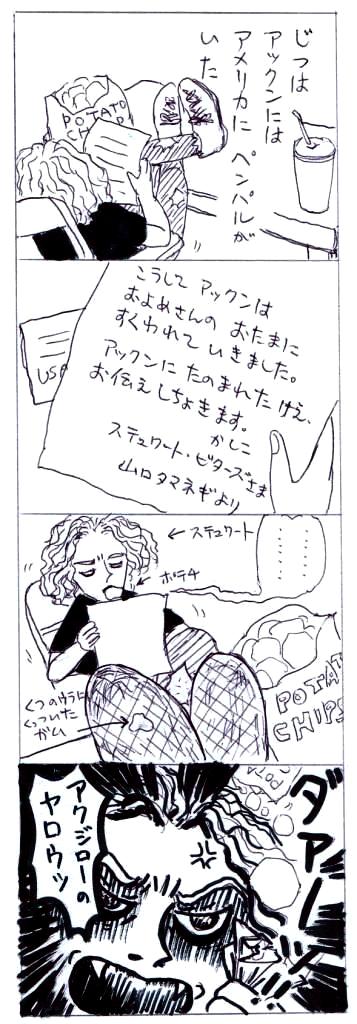 じつは
アックンには
アメリカに ペンパルが
いた
POTATO
CHIP
こうして アックンは
およめさんの おたまに
すくわれて いきました。
アックンに たのまれた けえ、
お伝え しちょきます。
かしこ
ステュワート・ビターズさま
山口タマネギより
USA
←ステュワート
←ポテチ
くつのウラに
くっついた
ガム
POTAT
CHIPS
ダァーッ
アクジローの
ヤロウッ
POTA